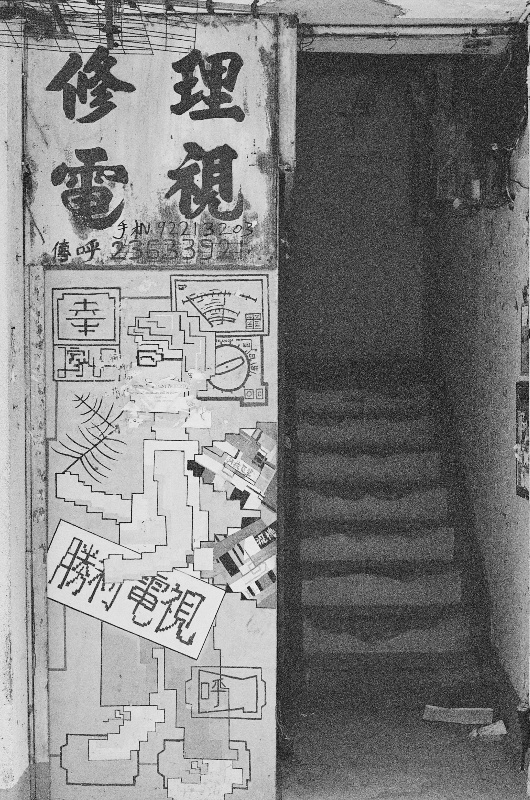 修理
電視
手机 92213203
傳呼 23633921
勝利電視